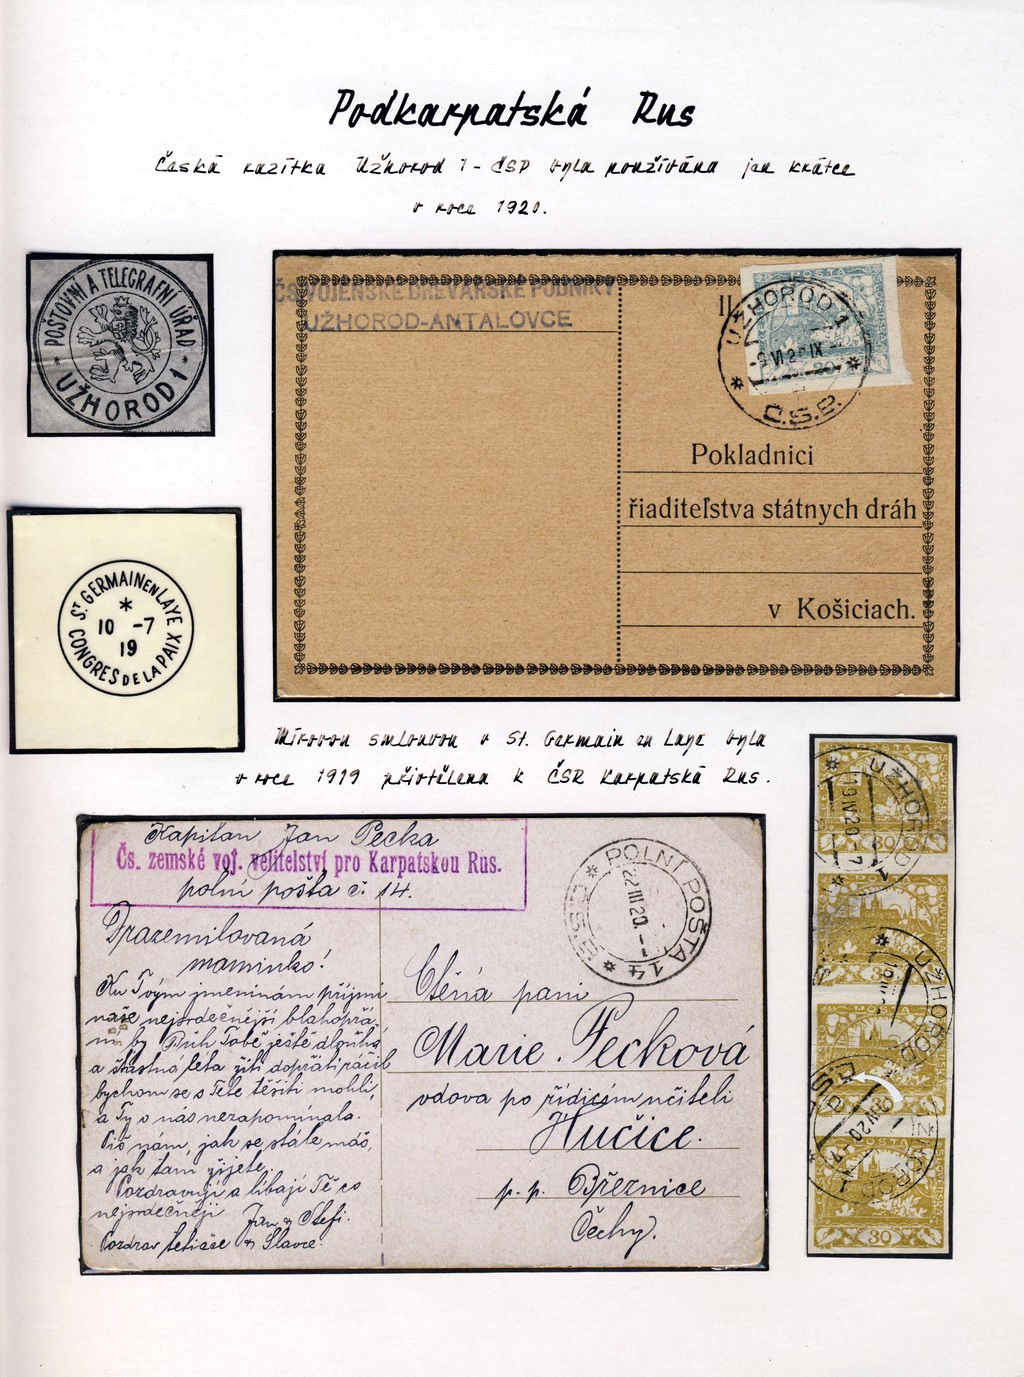 Podkarpatská Rus
Česká razítka Užhorod 1 - ČSP byla používána jen krátce
v roce 1920.
POŠTOVNÍ A TELEGRAFNÍ ÚŘAD
* UŽHOROD 1 *
ČS VOJENSKÉ DREVÁRSKE PODNIKY
UŽHOROD-ANTALOVCE
II
POSTA
20
UŽHOROD 1
Č.S.P.
Pokladnici
řiaditeľstva státnych dráh
v Košiciach.
ST GERMAIN EN LAYE
*
10 -7
19
CONGRES DE LA PAIX
Mírovou smlouvou v St. Germain en Laye byla
v roce 1919 přivtělena k ČSR Karpatská Rus.
Kapitan Jan Pecka
Čs. zemské voj. velitelství pro Karpatskou Rus.
polní pošta č. 14.
* POLNÍ POŠTA 14 * Č.S.P.
22 III 20
Drazemilovaná
maminko!
Ku Tvým jmeninám přijmi
naše nejsrdečnější blahopřá-
ní, by Bůh Tobě ještě dlouhá
a šťastná léta žíti dopřáti ráčil
bychom se s Tebe těšiti mohli,
a Ty o nás nezapomínala.
Piš nám, jak se stále máš,
a jak tam žijete.
Pozdravují a líbají Tě co
nejsrdečněji Jan a Stefi.
Pozdrav tetičce a Slávce.
Ctěná paní
Marie Pecková
vdova po řídícím učiteli
Hučice.
p. p. Březnice
Čechy.
POSTA
30
UŽHOROD 1
19 IV 20
30
UŽHOROD
ČSP
19 IV 20
POSTA
UŽHOROD
30